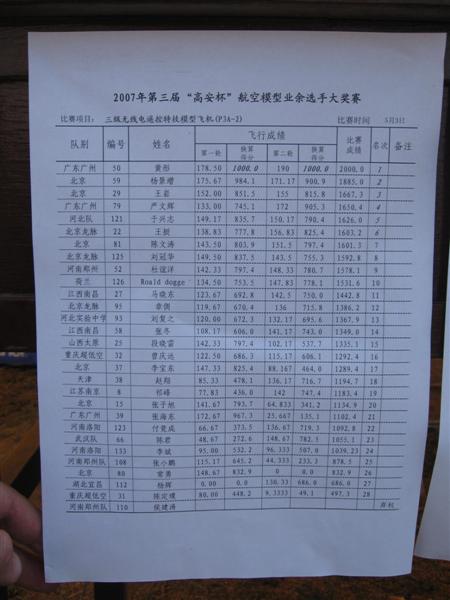 2007年第三届“高安杯”航空模型业余选手大奖赛
比赛项目: 三级无线电遥控特技模型飞机(P3A-2) 比赛时间 5月3日
队别 编号 姓名 飞行成绩 比赛成绩 名次 备注
第一轮 换算得分 第二轮 换算得分
广东广州 50 黄彤 178.50 1000.0 190 1000.0 2000.0 1
北京 59 杨景增 175.67 984.1 171.17 900.9 1885.0 2
北京 29 王岩 152.00 851.5 155 815.8 1667.3 3
广东广州 79 严文辉 133.00 745.1 172 905.3 1650.4 4
河北队 121 于兴志 149.17 835.7 150.17 790.4 1626.0 5
北京龙脉 22 王挺 138.83 777.8 156.83 825.4 1603.2 6
北京 81 陈文涛 143.50 803.9 151.5 797.4 1601.3 7
北京龙脉 125 刘冠华 149.50 837.5 143.5 755.3 1592.8 8
河南郑州 52 杜谊洋 142.33 797.4 148.33 780.7 1578.1 9
荷兰 126 Roald dogge 134.50 753.5 147.83 778.1 1531.6 10
江西南昌 27 马晓东 123.67 692.8 142.5 750.0 1442.8 11
北京龙脉 95 章偶 119.67 670.4 136 715.8 1386.2 12
河北实验中学 93 刘复之 120.00 672.3 132.17 695.6 1367.9 13
江西南昌 58 张冬 108.17 606.0 141.17 743.0 1349.0 14
山西太原 25 段晓雷 142.33 797.4 102.17 537.7 1335.1 15
重庆超低空 32 曾庆达 122.50 686.3 115.17 606.1 1292.4 16
北京 37 李宝东 147.33 825.4 88.167 464.0 1289.4 17
天津 38 赵翔 85.33 478.1 136.17 716.7 1194.7 18
江苏南京 8 祁峰 77.83 436.0 142 747.4 1183.4 19
北京 15 张子旭 141.67 793.7 64.833 341.2 1134.9 20
广东广州 39 张海东 172.67 967.3 25.667 135.1 1102.4 21
河南洛阳 123 付竞成 66.67 373.5 136.67 719.3 1092.8 22
武汉队 66 陈君 48.67 272.6 148.67 782.5 1055.1 23
河南洛阳 133 李斌 95.00 532.2 96.333 507.0 1039.23 24
河南郑州队 108 张小鹏 115.17 645.2 44.333 233.3 878.5 25
北京 80 常勇 148.67 832.9 0 0.0 832.9 26
湖北宜昌 112 杨辉 0.00 0.0 130.33 686.0 686.0 27
重庆超低空 31 陈定璞 80.00 448.2 9.3333 49.1 497.3 28
河南郑州队 110 侯建涛 弃权